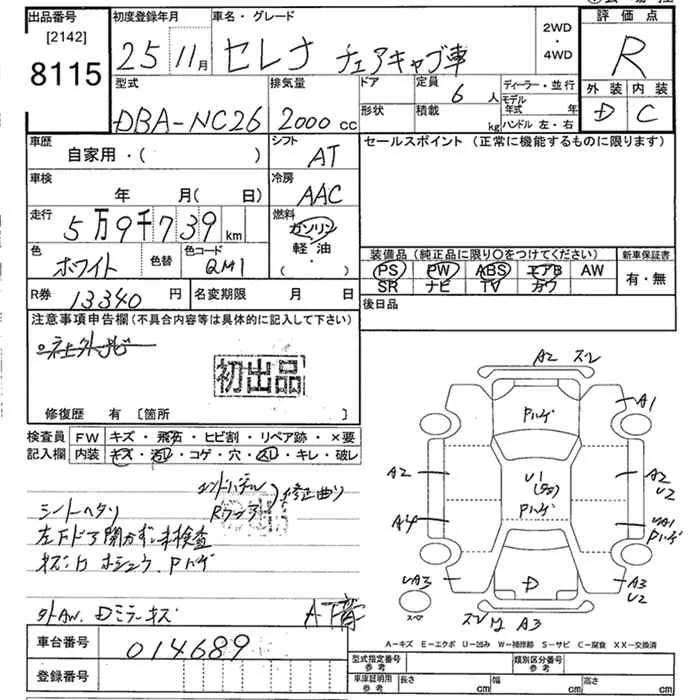 出品番号 初度登録年月 車名・グレード 2WD ・ 4WD 評価点
[2142]
8115
25 11月 セレナ チェアキャブ車 R
型式 排気量 ドア 定員 6人 ディーラー・並行 外装 内装
DBA-NC26 2000cc 形状 積載 kg モデル年式 年 ハンドル 左・右 D C
車歴 自家用・( ) シフト AT セールスポイント(正常に機能するものに限ります)
車検 年 月( 日) 冷房 AAC
走行 5万9千739km 燃料 ガソリン 軽・油 ・( )
色 ホワイト 色替 色コード QM1
装備品(純正品に限り〇をつけてください) 新車保証書
PS PW ABS エアB AW 有・無
SR ナビ TV カワ
R券 13340円 名変期限 月 日 後日品
注意事項申告欄(不具合内容等は具体的に記入して下さい)
初出品
修復歴 有 [箇所 ]
検査員記入欄 FW キズ・飛石・ヒビ割・リペア跡・×要
内装 キズ・汚れ・コゲ・穴・スレ・キレ・破レ
修正曲り
シートヘタリ
左下ドア開かず 未検査
外AW. Dミラーキズ
A下音
A2 スレ
Pハゲ A1
A2 U1 A2 U2
A4 Pハゲ UA1 Pハゲ
UA3 D A3 U2
スペア スレ A3
A－キズ E－エクボ U－凹み W－補修跡 S－サビ C－腐食 XX－交換済
車台番号 014689
型式指定番号 参考 類別区分番号 参考
登録番号
車庫証明用 参考 長さ cm 幅 cm 高さ cm